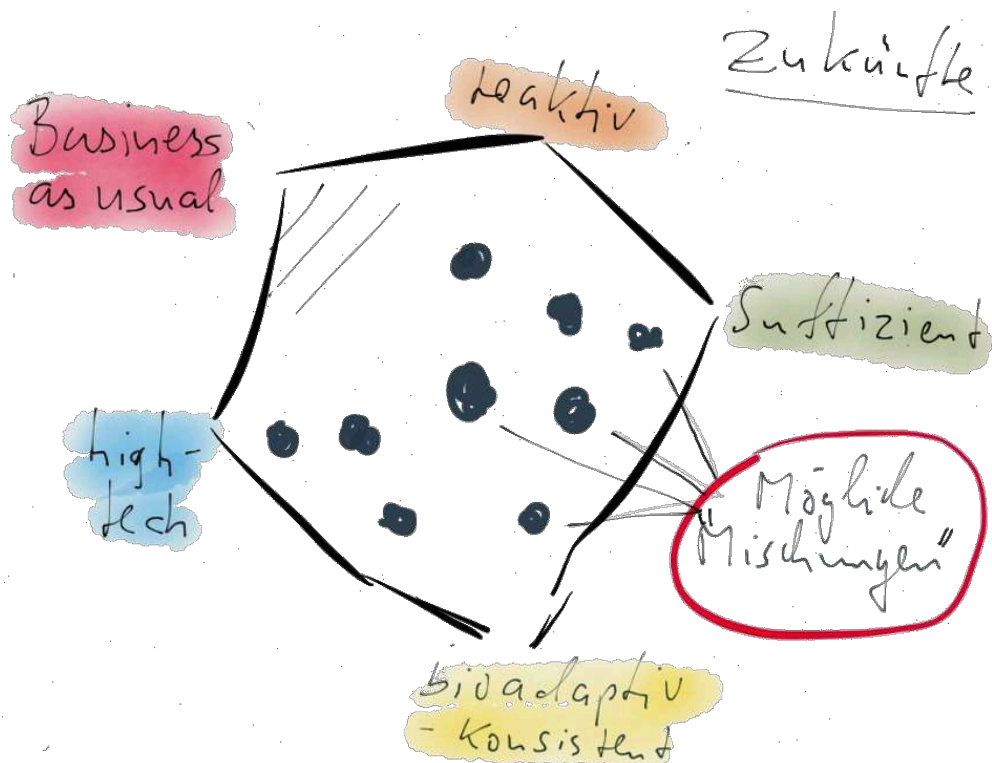 Zukünfte
reaktiv
Business
as usual
Suffizient
high-
tech
Mögliche
"Mischungen"
bioadaptiv
- Konsistent